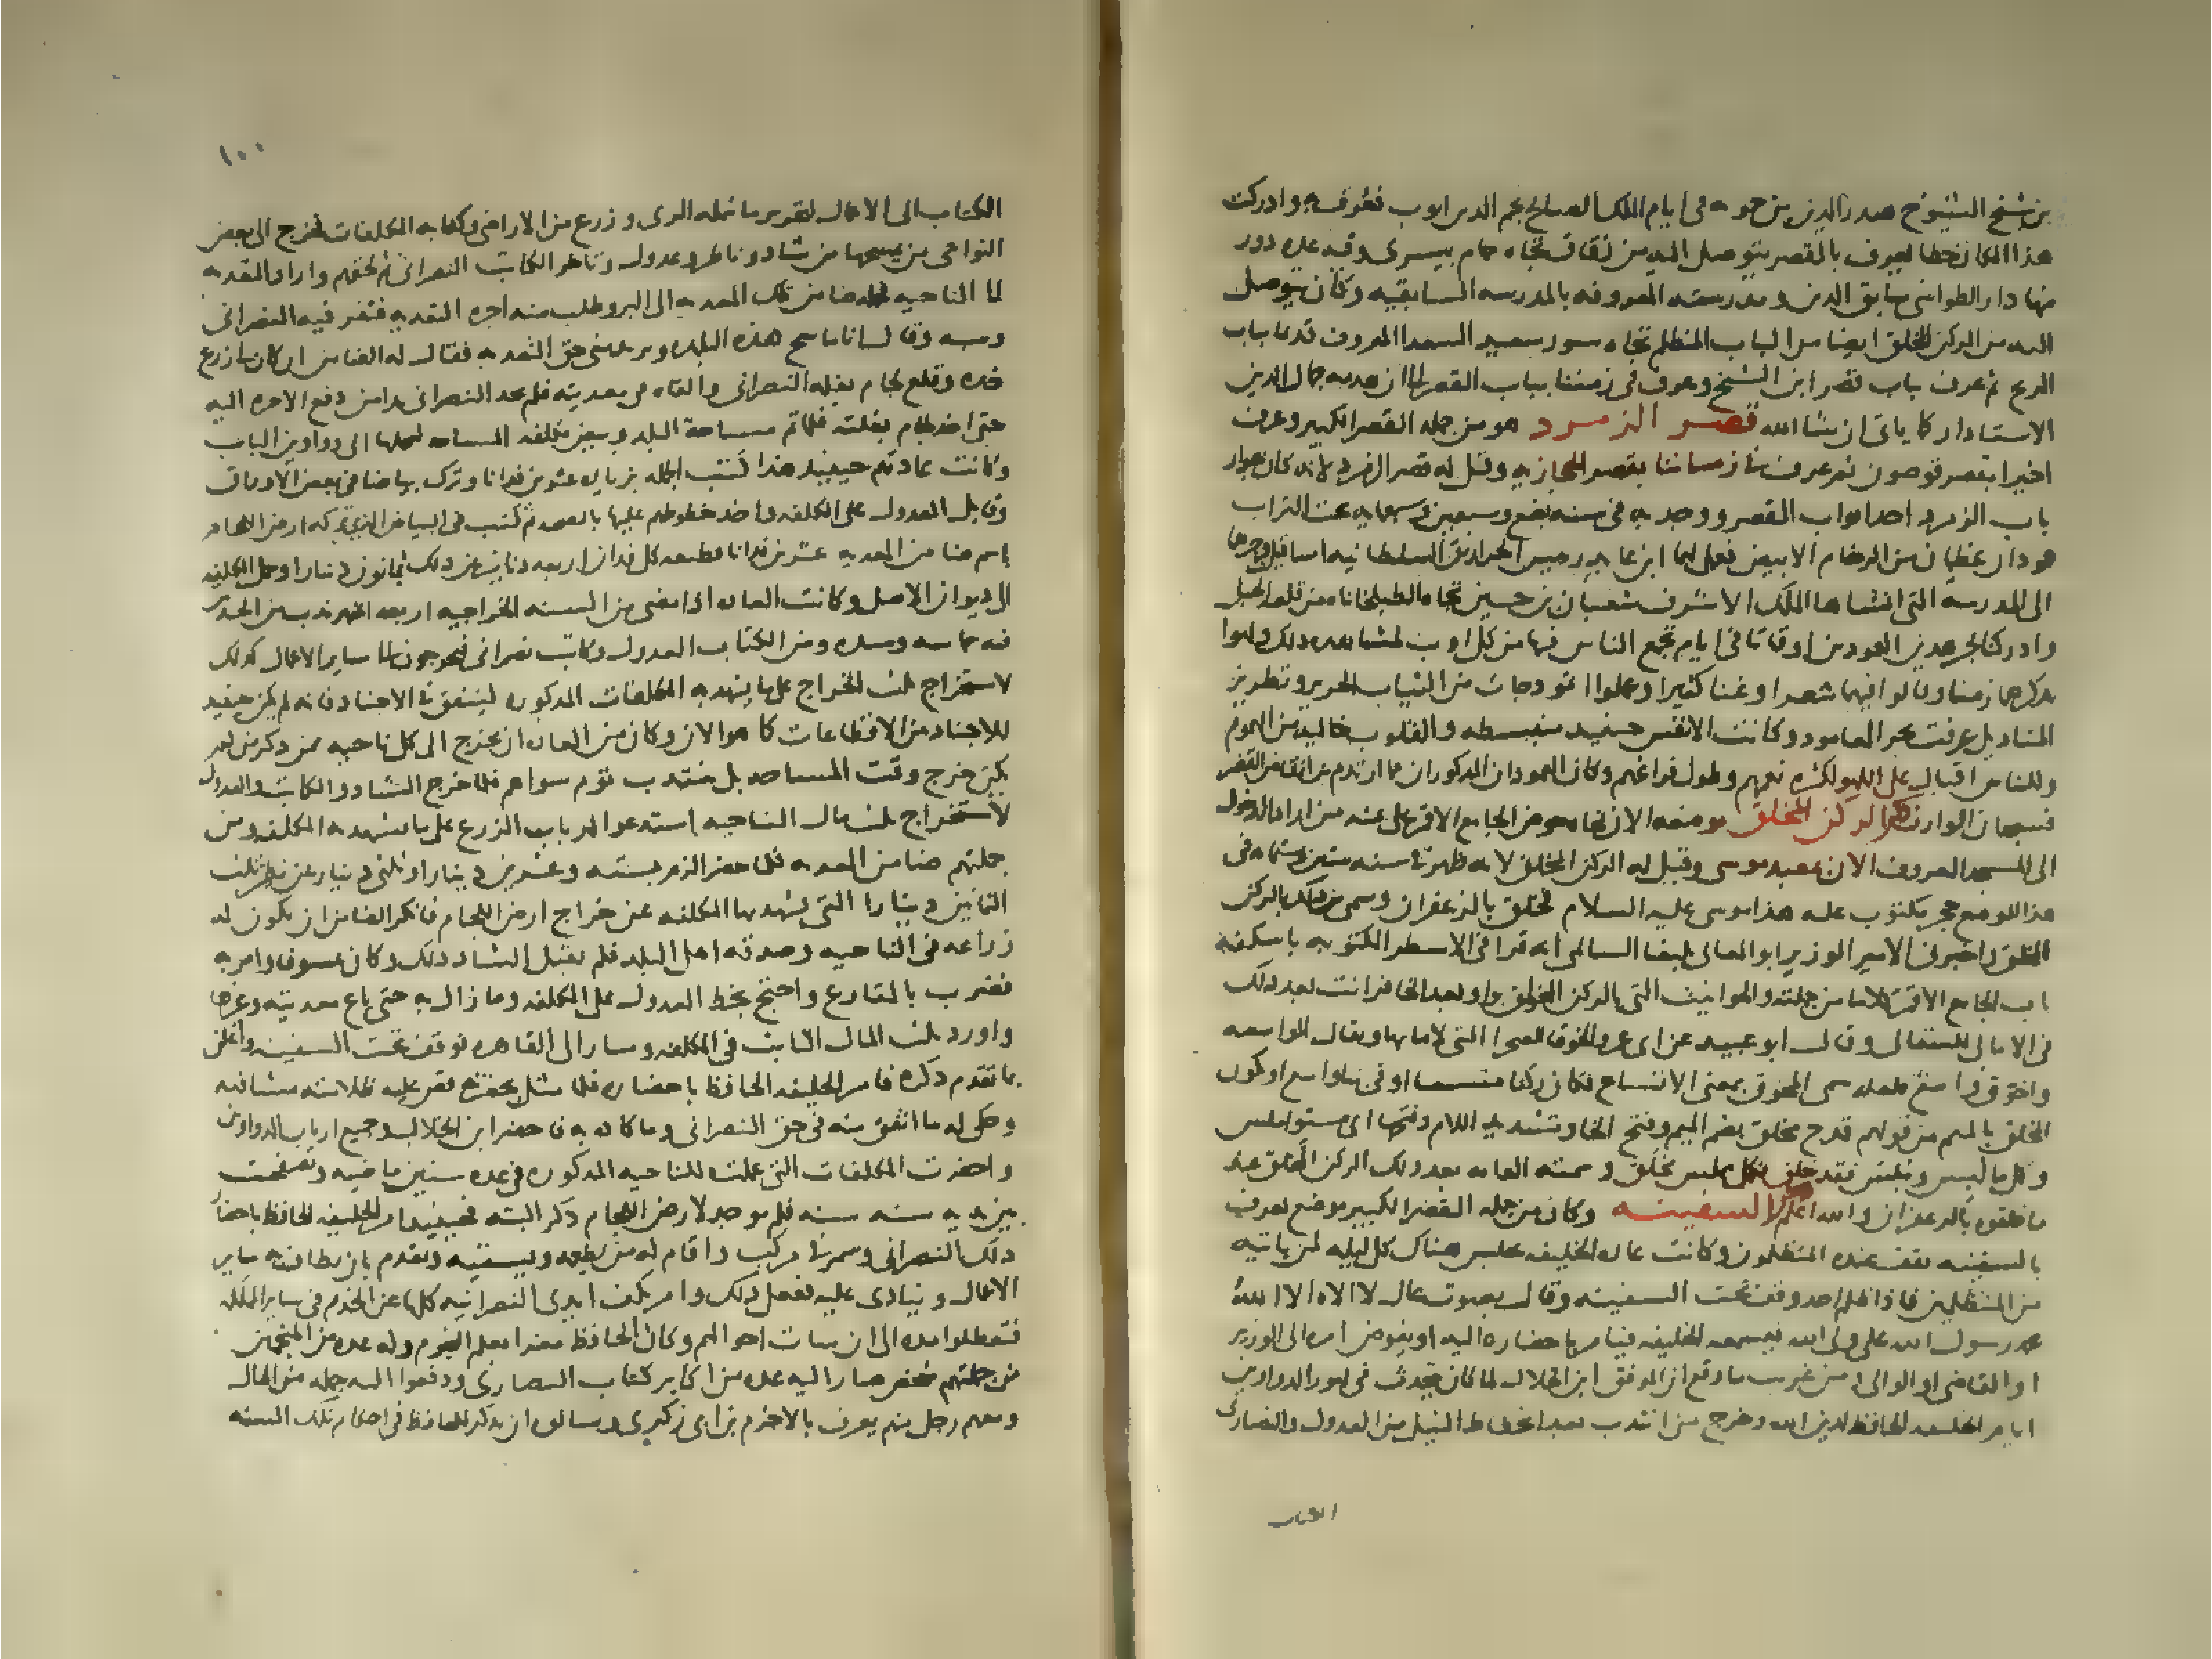 بن شيخ الشيوخ صدر الدين بن حمويه في ايام الملك الصالح نجم الدين ايوب فعرف به وادركت
هذا المكان خطا يعرف بالقصر يتوصل اليه من زقاق تجاه حمام بيسرى وفيه عده دور
منها دار الطواشى سابق الدين ومدرسته المعروفه بالمدرسه السابقيه وكان يتوصل
اليه من الركن المخلق ايضا من الباب المظلم تجاه سور سعيد السعدا المعروف قديما بباب
الريح ثم عرف بباب قصر ابن الشيخ وعرف في زمننا بباب القصر الى ان هدمه جمال الدين
الاستادار كما ياتى ان شا الله قصر الزمرد هو من جمله القصر الكبير وعرف
اخيرا بقصر قوصون ثم عرف في زماننا بقصر الحجازيه وقيل له قصر الزمرد لانه كان بجوار
باب الزمرد احد ابواب القصر ووجد به في سنه بضع وسبعين وسبعمايه تحت التراب
عمودان عظيمان من الرخام الابيض فعمل لهما ابن عابد رييس الحراريق السلطانيه اساقيل وجرهما
الى المدرسه التى انشاها الملك الاشرف شعبان بن حسين تجاه الطبلخاناه من قلعه الجبل
وادركنا لجر هذين العمودين اوقاتا في ايام تجمع الناس فيها من كل اوب لمشاهده ذلك ولهوا
بذكرهما زمنا وقالوا فيهما شعرا وغنا كثيرا وعملوا نموذجات من الثياب الحرير وتطريز
المناديل عرفت بجر العامود وكانت الانفس حينيذ منبسطه والقلوب خاليه من الهموم
وللناس اقبال على اللهو لكثره نعمهم وطول فراغهم وكان العمودان المذكوران مما ارتدم من انقاض القصر
فسبحان الوارث الركن المخلق موضعه الان تجاه حوض الجامع الاقمر على يمنه من اراد الدخول
الى المسجد المعروف الان بمعبد موسى وقيل له الركن المخلق لانه ظهر في سنه ستين وستمايه في
هذا الموضع حجر مكتوب عليه هذا موسى عليه السلام فخلق بالزعفران وسمى من ذلك بالركن
المخلق واخبرنى الامير الوزير ابو المعالى يلبغا السالمى انه قرا في الاسطر المكتوبه باسكفه
باب الجامع الاقمر كلاما من جملته والحوانيت التى بالركن المخلوق بواو بعد الخا فرايت بعد ذلك
في الامالى للقالى وقال ابو عبيد عن ابى عمرو الخوقا الصحرا التى لاما بها ويقال الواسعه
واخوق واسع فلعله سمى المخوق بمعنى الاتساع فكان ركنا متسعا او في بناواسع او كون
المخلق باللام من قولهم قدح مخلق بضم الميم وفتح الخا وتشديد اللام وفتحها اى مستو املس
وكل ما لين وملس فقد خلق فكل ملس مخلق وسمته العامه بعد ذلك الركن المخلق عند
ما خلقوه بالزعفران والله اعلم السفينه وكان من جمله القصر الكبير موضع يعرف
بالسفينه يقف عنده المتظلمون وكانت عاده الخليفه يجلس هناك كل ليله لمن ياتيه
من المتظلمين فاذا ظلم احد وقف تحت السفينه وقال بصوت عال لا اله الا الله
محمد رسول الله على ولى الله فيسمعه الخليفه فيامر باحضاره اليه او يفوض امره الى الوزير
او القاضى او الوالى من غريب ما وقع ان الموفق ابن الخلال لما كان يتحدث في امور الدواوين
ايام الخليفه الحافظ لدين الله وخرج من انتدب بعد انحطاط النيل من العدول والنصارى
الكتاب
١٠٠
الكتاب الى الاعمال لتحرير ما شمله الرى وزرع من الاراضى وكتابه المكلفات فخرج الى بعض
النواحى من يمسحها من شاد وناظر وعدول وتاخر الكاتب النصرانى ثم لحقهم واراد التعديه
الى الناحيه فحمله ضامن تلك المعديه الى البر وطلب منه اجره التعديه فنفر فيه النصرانى
وسبه وقال انا ماسح هذه البلده وتريد منى حق التعديه فقال له الضامن ان كان لى زرع
خذه وقلع لجام بغله النصرانى والقاه في معديته فلم يجد النصرانى بدا من دفع الاجره اليه
حتى اخذ لجام بغلته فلما تم مساحة البلد وبيض مكلفه المساحه ليحملها الى دواوين الباب
وكانت عادتهم حينيذ هذا كتب الجمله بزياده عشرين فدانا وترك بياضا في بعض الاوراق
وقابل العدول على المكلفه واخذ خطوطهم عليها بالصحه ثم كتب في البياض الذي تركه ارض اللجام
باسم ضامن المعديه عشرين فدانا قطيعه كل فدان اربعه دنانير عن ذلك ثمانون دينارا وحمل المكلفه
الى ديوان الاصل وكانت العاده اذا مضى من السنه الخراجيه اربعه اشهر ندب من الجند
من فيه حماسه وشده ومن الكتاب العدول وكاتب نصرانى فيخرجون الى ساير الاعمال كذلك
لاستخراج ثلث الخراج على ما يشهد به المكلفات المذكوره لينفق في الاجناد فانه لم يكن حينيذ
للاجناد من الاقطاعات كما هو الان وكان من العاده ان يخرج الى كل ناحيه ممن ذكر من لم
يكن خرج وقت المساحه بل ينتدب قوم سواهم فلما خرج الشاد والكاتب والعدول
لاستخراج ثلث مال الناحيه استدعوا ارباب الزرع على ما يشهد به المكلفه ومن
جملتهم ضامن المعديه فلما حضر الزم بسته وعشرين دينارا وثلثى دينار عن نظير ثلث
الثمانين دينارا التى يشهد بها المكلفه عن خراج ارض اللجام فانكر الضامن ان يكون له
زراعه في الناحيه وصدقه اهل البلد فلم يقبل الشاد ذلك وكان عسوفا وامر به
فضرب بالمقارع واحتج بخط العدول على المكلفه وما زال به حتى باع معديته وغيرها
واورد ثلث المال الثابت في المكلفه وسار الى القاهره فوقف تحت السفينه واعلن
بما تقدم ذكره فامر الخليفه الحافظ باحضاره فلما مثل بحضرته قص عليه ظلامته مشافهه
وحكى له ما اتفق منه في حق النصرانى وما كاده به فاحضر ابن الخلال وجميع ارباب الدواوين
واحضرت المكلفات التى عملت للناحيه المذكوره في عده سنين ماضيه وتصفحت
بين يديه سنه سنه فلم يوجد لارض اللجام ذكر البته فحينيذ امر الخليفه الحافظ باحضار
ذلك النصرانى وسمر في مركب واقام له من يطعمه ويسقيه وتقدم بان يطاف به ساير
الاعمال وينادى عليه ففعل ذلك وامر بكف ايدى النصرانيه كلها عن الخدم في ساير المملكه
فتعطلوا مده الى ان سات احوالهم وكان الحافظ مغرا بعلم النجوم وله عده من المنجمين
من جملتهم شخص صار اليه عده من اكابر كتاب النصارى ودفعوا اليه جمله من المال
ومعهم رجل منهم يعرف بالاخرم بن ابى زكرى وسالوه ان يذكر للحافظ في احكام تلك السنه